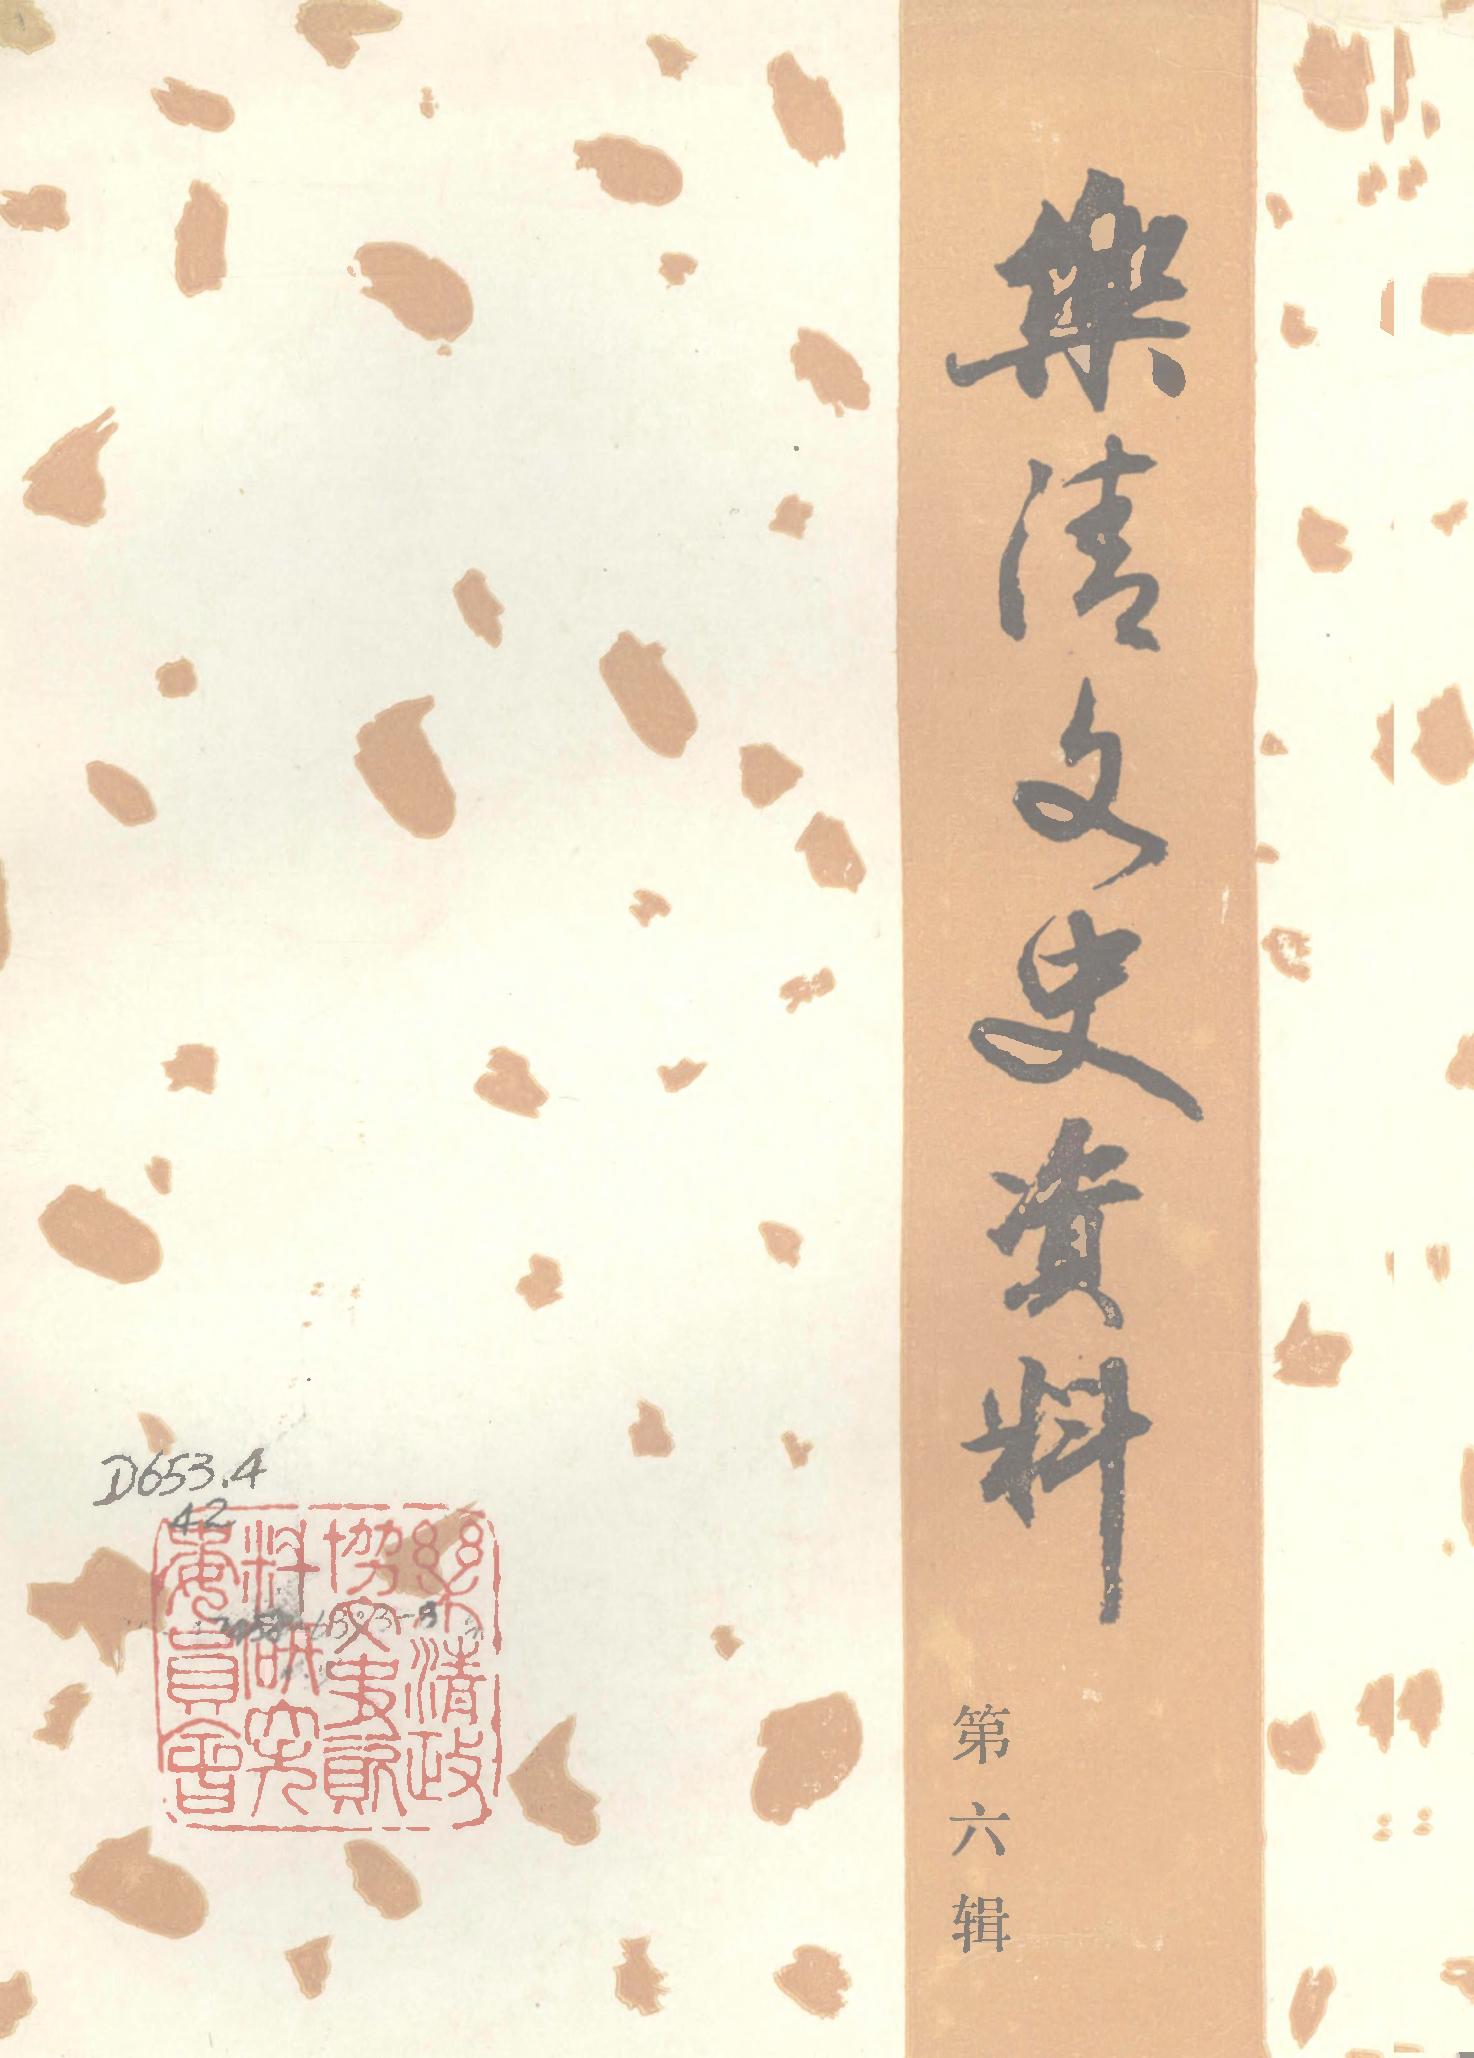 樂清文史資料
第六辑
D653.4
42
乐清政
協文史資
料研究
委員会